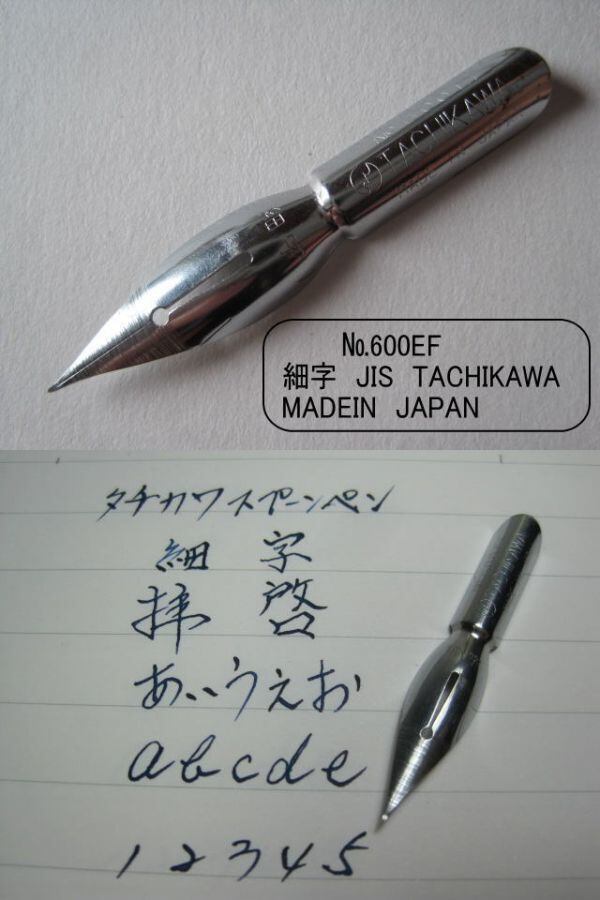 TACHIKAWA
細字
№.600EF
細字 JIS TACHIKAWA
MADEIN JAPAN
タチカワスプーンペン
細字
拝啓
あいうえお
abcde
12345
TACHIKAWA